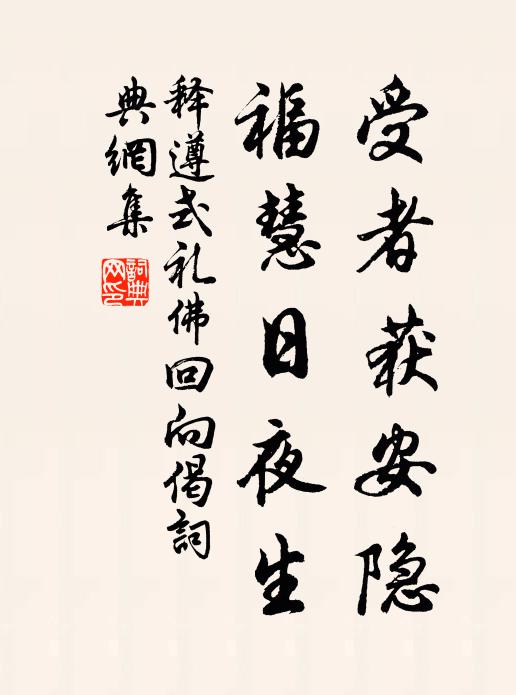 受者获安隐
福慧日夜生
释遵式礼佛回向偈詞
典網集
詞典網印